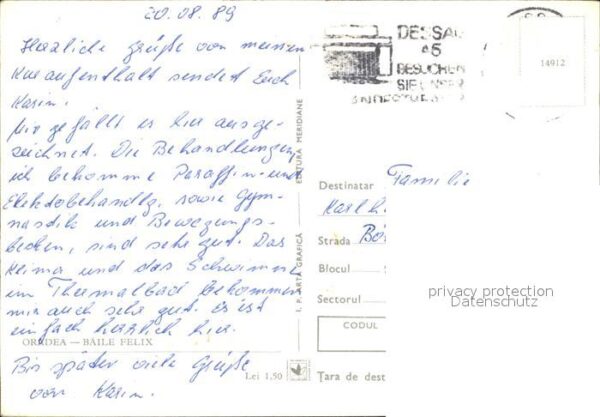 20.08.89
Herzliche Grüße von meinem
Kuraufenthalt sendet Euch
Karin.
Mir gefällt es hier ausge-
zeichnet. Die Behandlungen,
ich bekomme Paraffin- und
Elektobehandlg, sowie Gym-
nastik und Bewegungs-
becken, sind sehr gut. Das
Klima und das Schwimmen
im Thermalbad bekommen
mir auch sehr gut. Es ist
einfach herrlich hier.
ORADEA — BĂILE FELIX
Bis später viele Grüße
von Karin.
Lei 1,50
I. P. ARTA GRAFICĂ
EDITURA MERIDIANE
DESSAU
45
BESUCHEN
SIE UNSER
14912
Destinatar
Familie
Karl
Strada
Blocul
Sectorul
CODUL
Țara de dest
privacy protection
Datenschutz